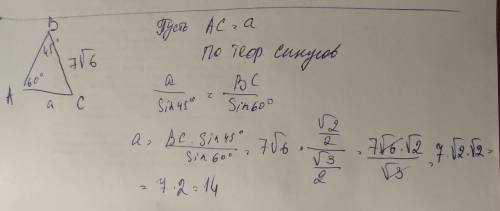 B
45°
7√6
A
60°
a
C
Пусть AC = a
По теор синусов
a/Sin45° = BC/Sin60°
a = BC · Sin45°/Sin60° = 7√6 · (√2/2)/(√3/2) = 7√6·√2/√3 = 7·√2·√2 =
= 7·2 = 14